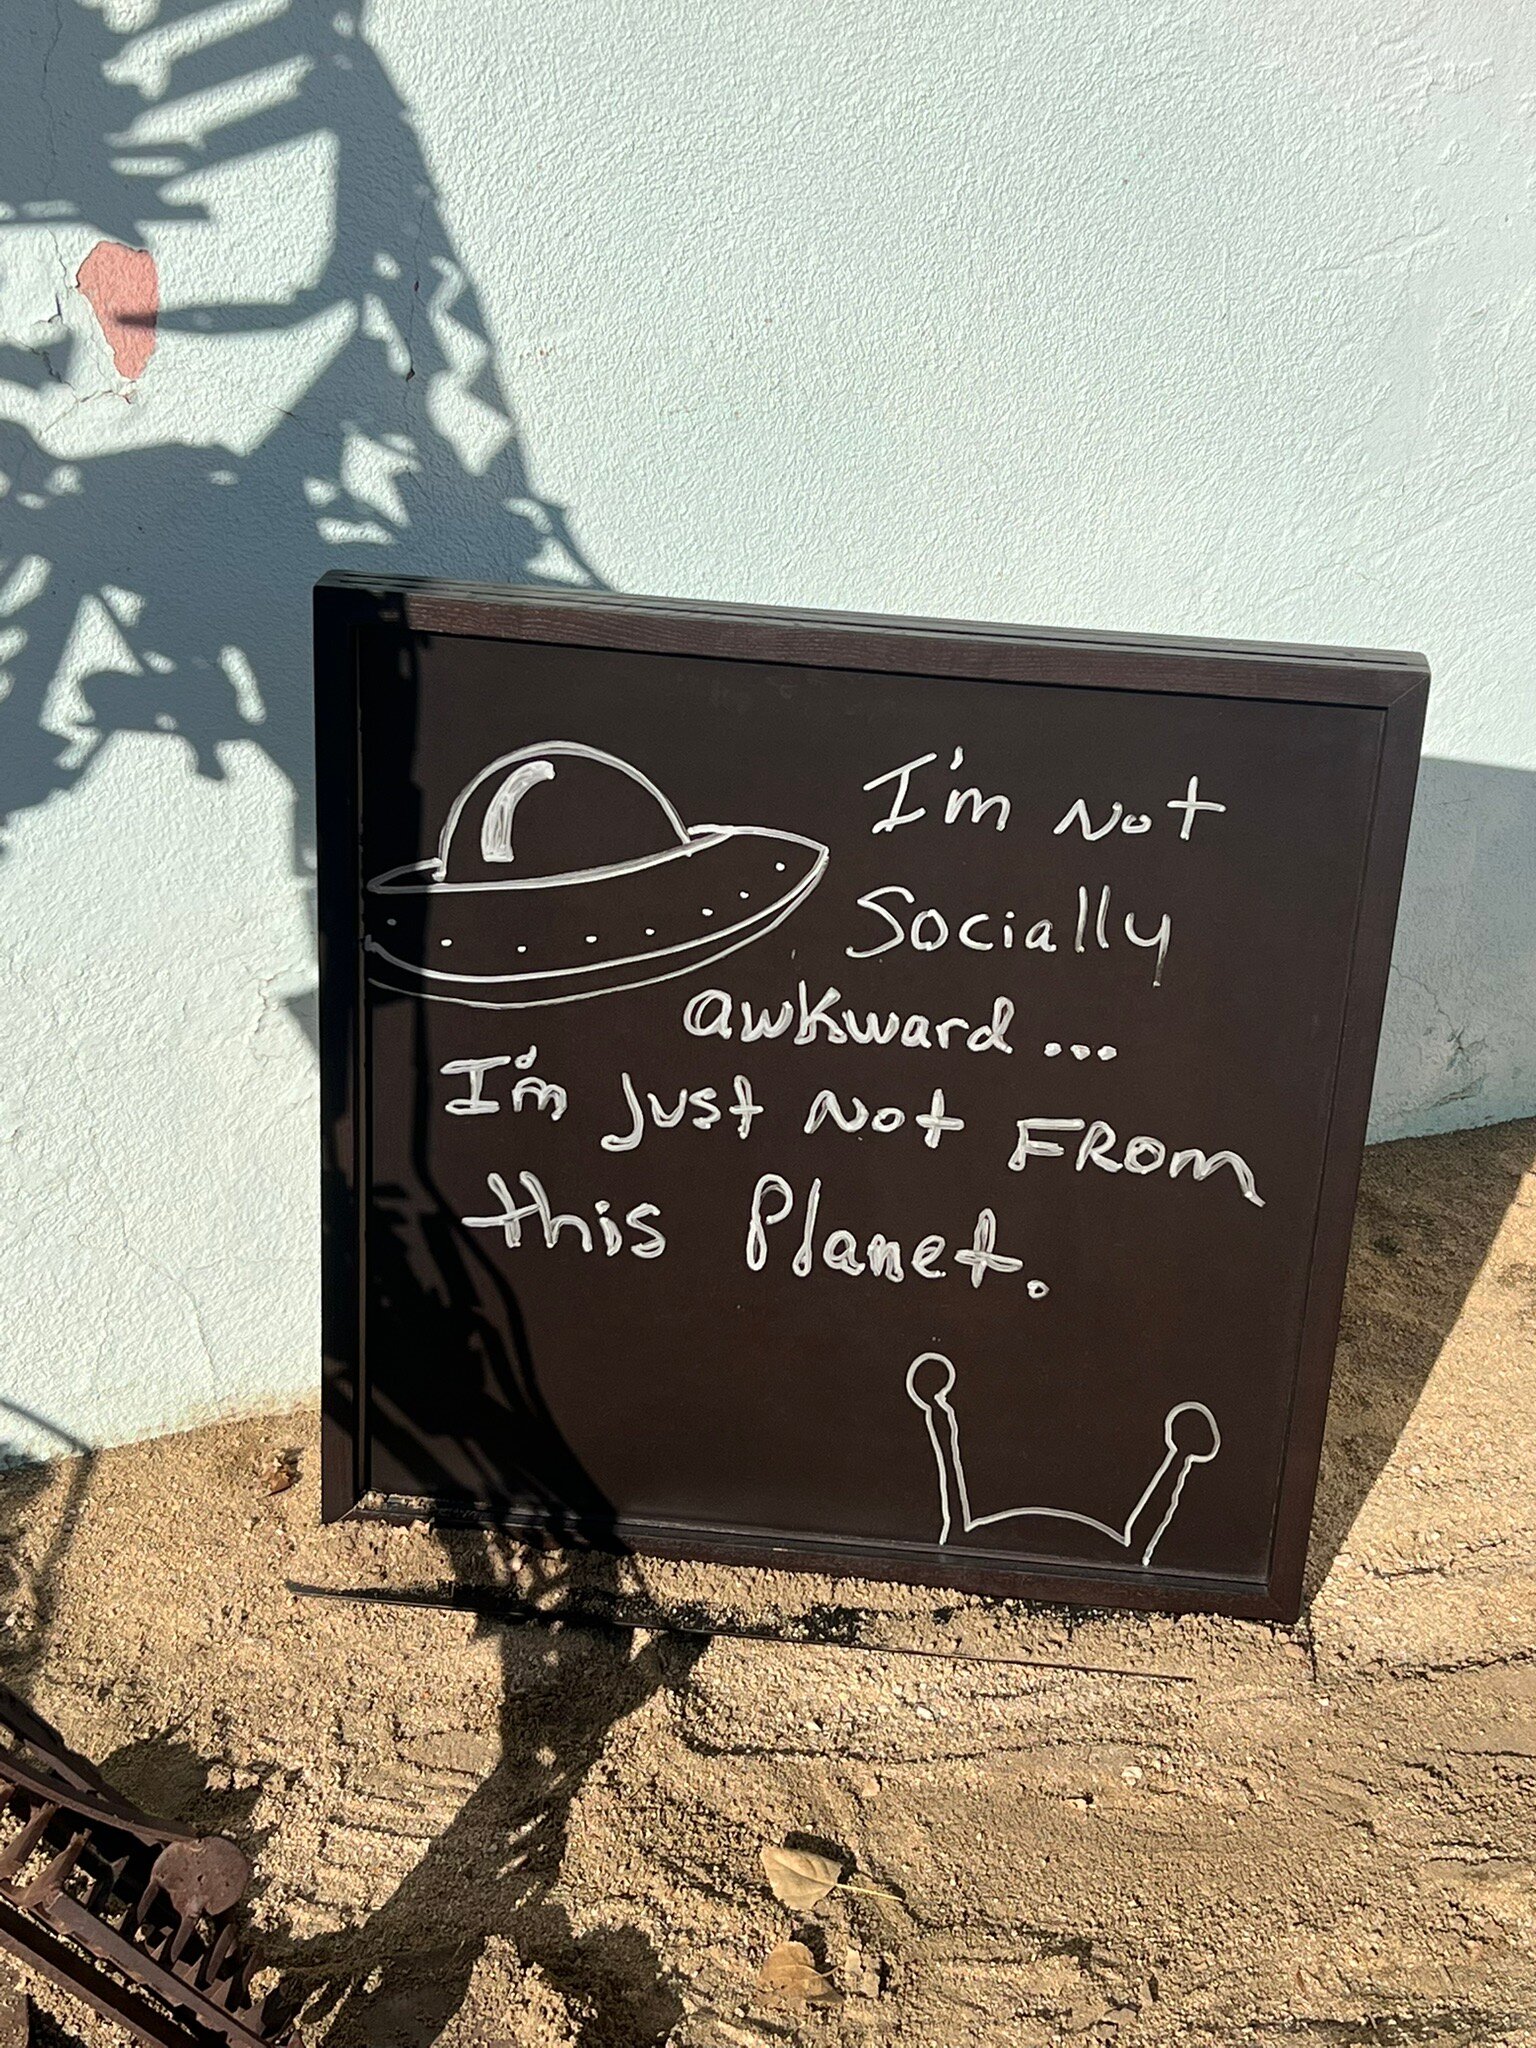 I'm Not
Socially
awkward...
I'm Just Not FROM
this Planet.